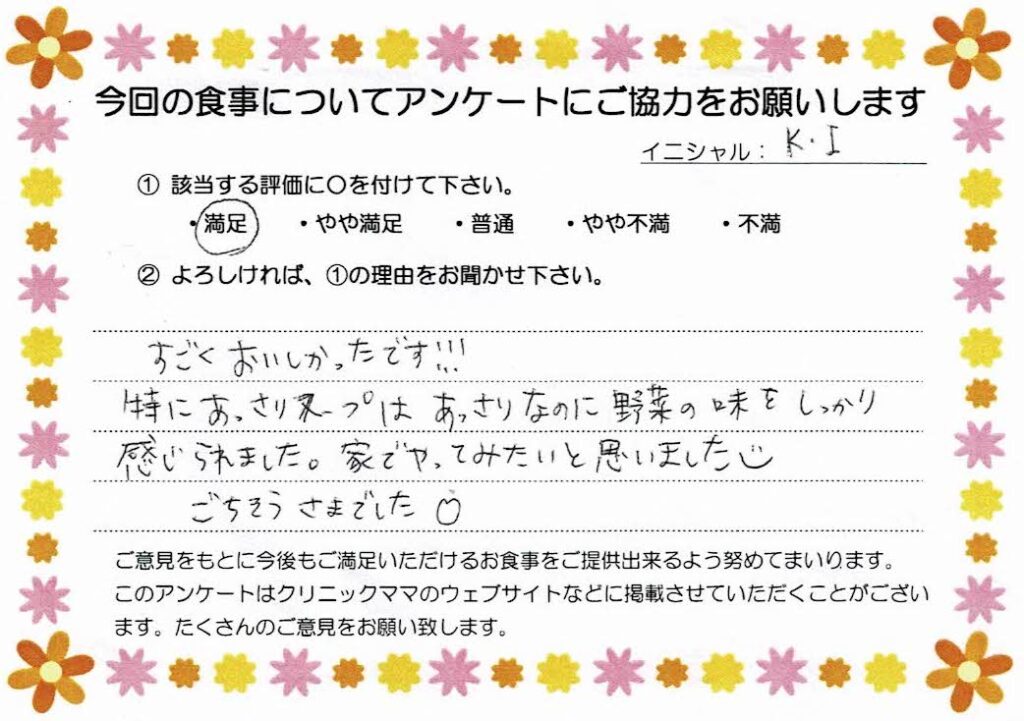 今回の食事についてアンケートにご協力をお願いします
イニシャル： K・I
① 該当する評価に○を付けて下さい。
・満足 ・やや満足 ・普通 ・やや不満 ・不満
② よろしければ、①の理由をお聞かせ下さい。
すごくおいしかったです!!!
特にあっさりスープは あっさりなのに野菜の味をしっかり
感じられました。家でやってみたいと思いました
ごちそうさまでした
ご意見をもとに今後もご満足いただけるお食事をご提供出来るよう努めてまいります。
このアンケートはクリニックママのウェブサイトなどに掲載させていただくことがござい
ます。たくさんのご意見をお願い致します。